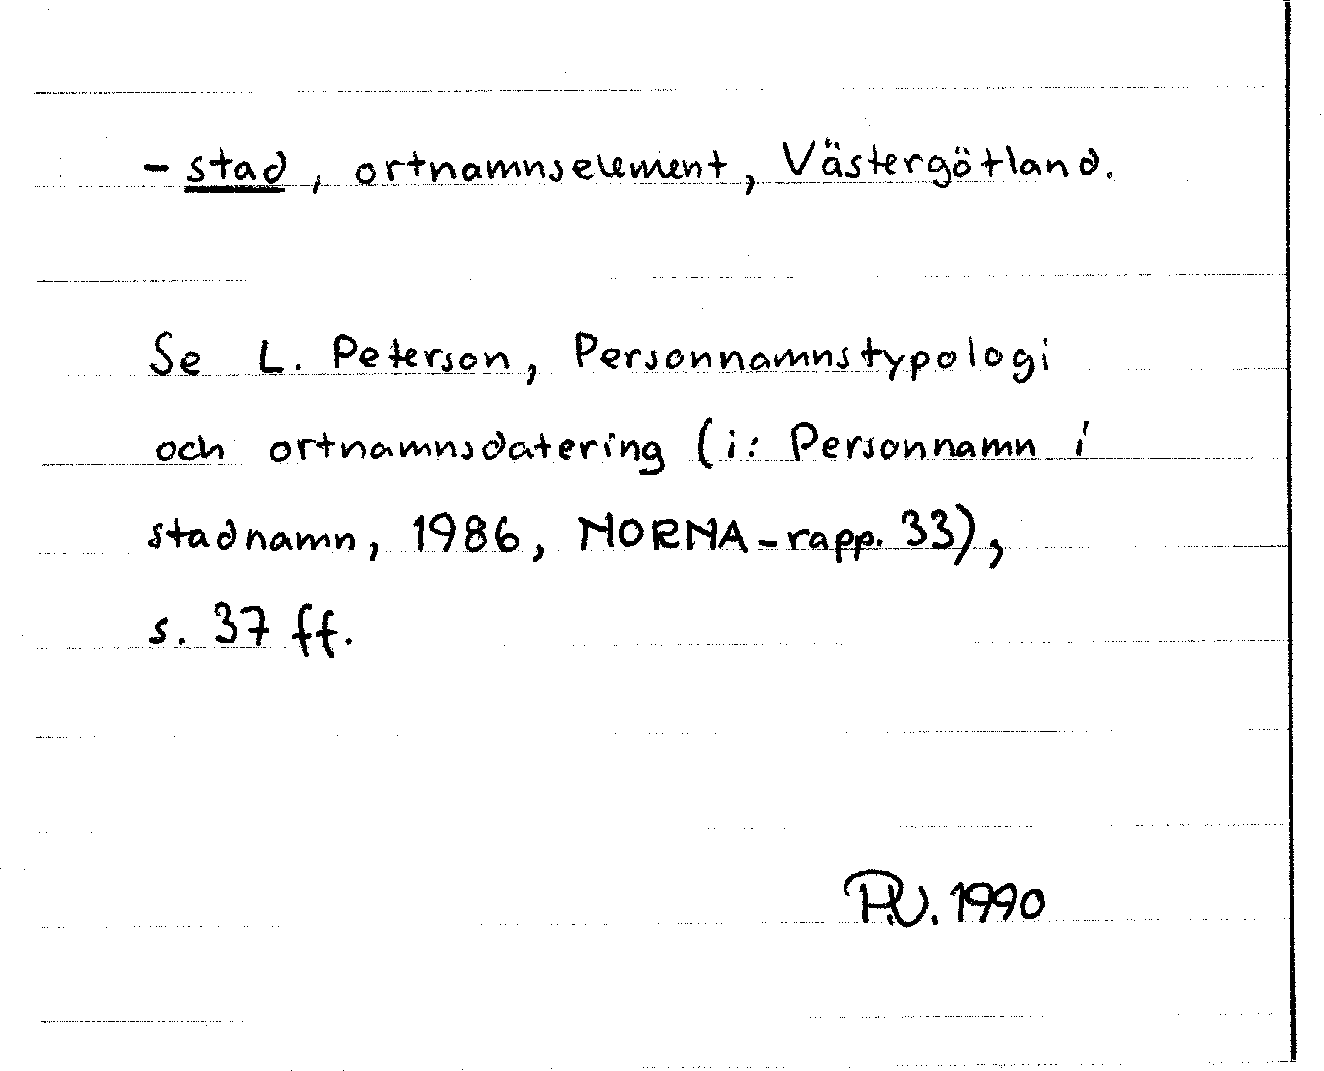 - stad, ortnamnselement, Västergötland.
Se L. Peterson, Personnamnstypologi
och ortnamnsdatering (i: Personnamn i
stadnamn, 1986, NORNA-rapp. 33),
s. 37 ff.
1990